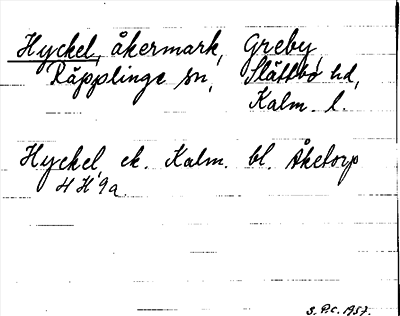 Hyckel, åkermark, Greby,
Räpplinge sn, Slättbo hd,
Kalm. l.
Hyckel, ek. Kalm. bl. Åketorp
4 H 9a
S.P.C. 1957.